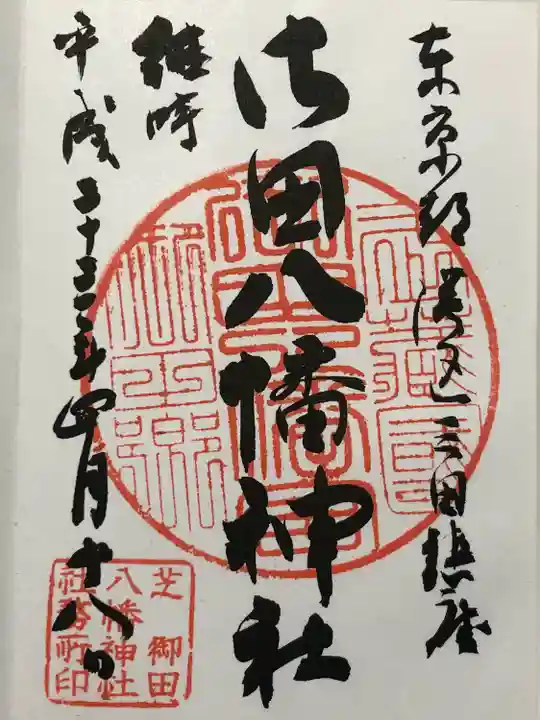 東京都港区三田鎮座
御田八幡神社
維時
平成三十一年四月十八日
芝御田
八幡神社
社務所印